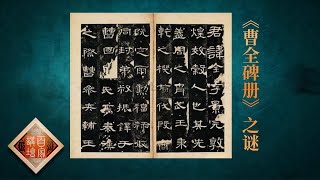 《曹全碑册》之谜
君諱全字景完敦
煌效穀人也其先
蓋周之胄武王秉
乾之機翦伐殷商
既定爾勳福祿攸
同封弟叔振鐸于
曹國因氏焉秦漢
之際曹參夾輔王
百家講壇